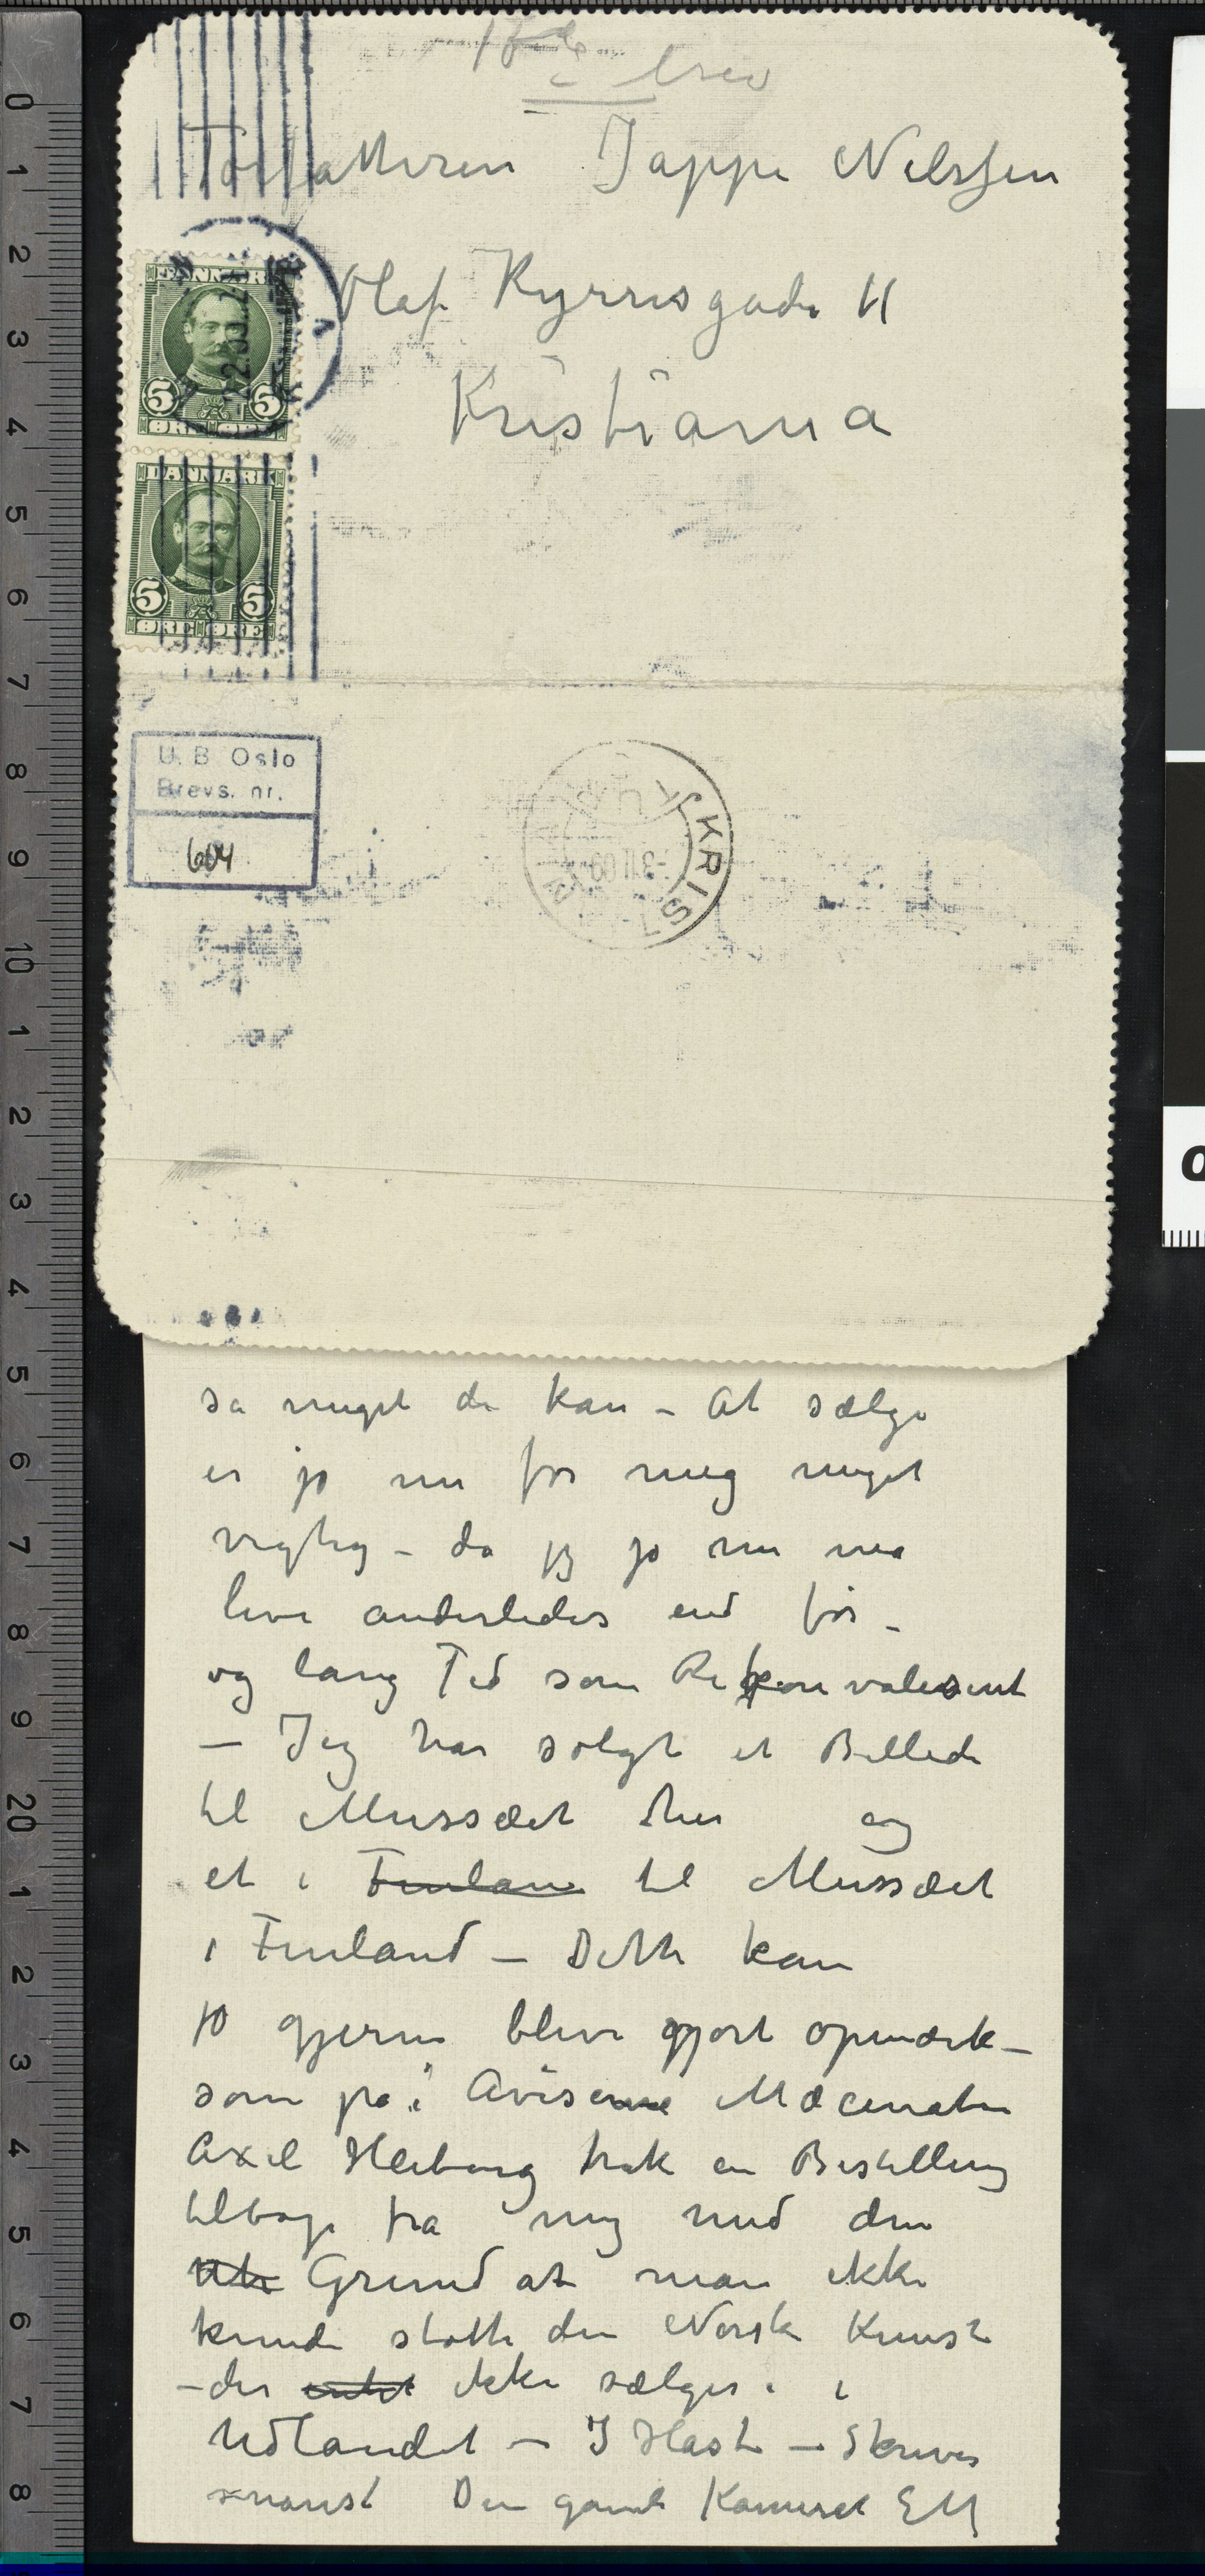 brev
Forfatteren Jappe Nilssen
Olaf Kyrresgade 11
Kristiania
DANMARK
5 5
ØRE ØRE
DANMARK
5 5
ØRE ØRE
U. B. Oslo
Brevs. nr.
604
KRISTIANIA
-3 II 09
så meget du kan – At sælge
er jo nu for mig meget
vigtig – da jeg jo nu må
leve anderledes end før –
og lang Tid som Rekonvalesent
– Jeg har solgt et Billede
til Mussæet her og
et i Finlan til Mussæet
i Finland – Dette kan
jo gjerne blive gjort opmærk-
som på i Aviserne Mæcenaten
Axel Heiberg trak en Bestilling
tilbage fra mig med den
Grund at man ikke
kunde støtte den Norske Kunst
– der intet ikke sælges i
Udlandet – I Hast – Skriv
snarest Din gamle Kamerat EM